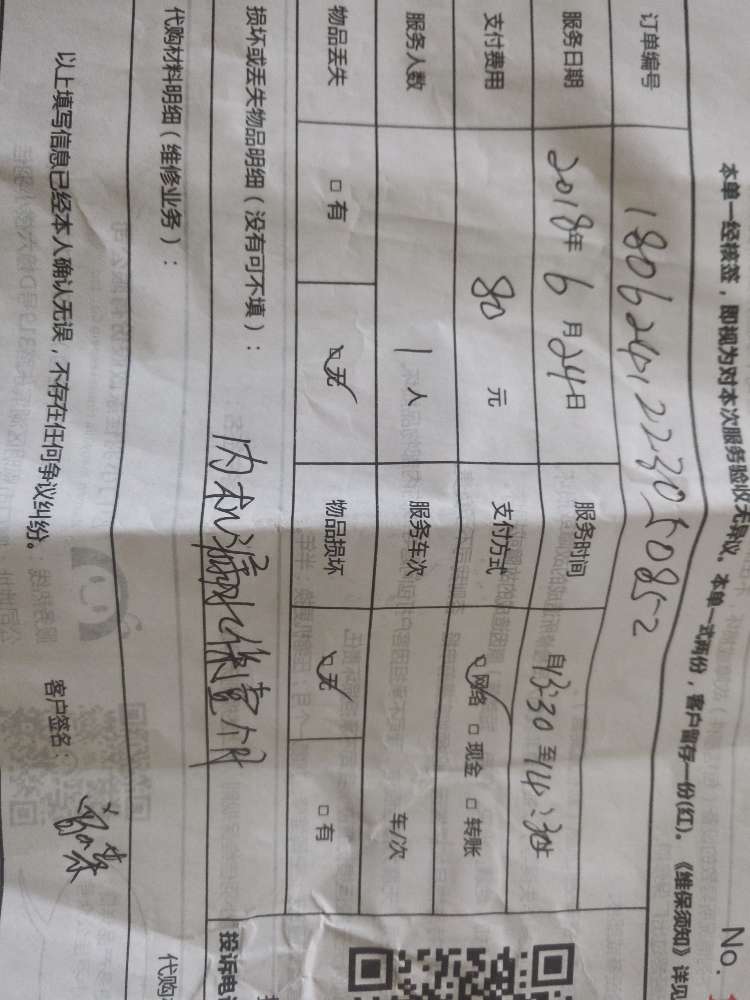 No.
本单一经核签，即视为对本次服务验收无异议。本单一式两份，客户留存一份(红)。《维保须知》详见
订单编号 180624122305 0852
服务日期 2018年6月24日 服务时间 自13:30至14:
支付费用 80元 支付方式 网络 现金 转账
服务人数 1人 服务车次 车/次
物品丢失 有 无 物品损坏 无 有
损坏或丢失物品明细（没有可不填）：
内机漏水保
个月
代购材料明细（维修业务）：
投诉电
代购
以上填写信息已经本人确认无误，不存在任何争议纠纷。 客户签名：